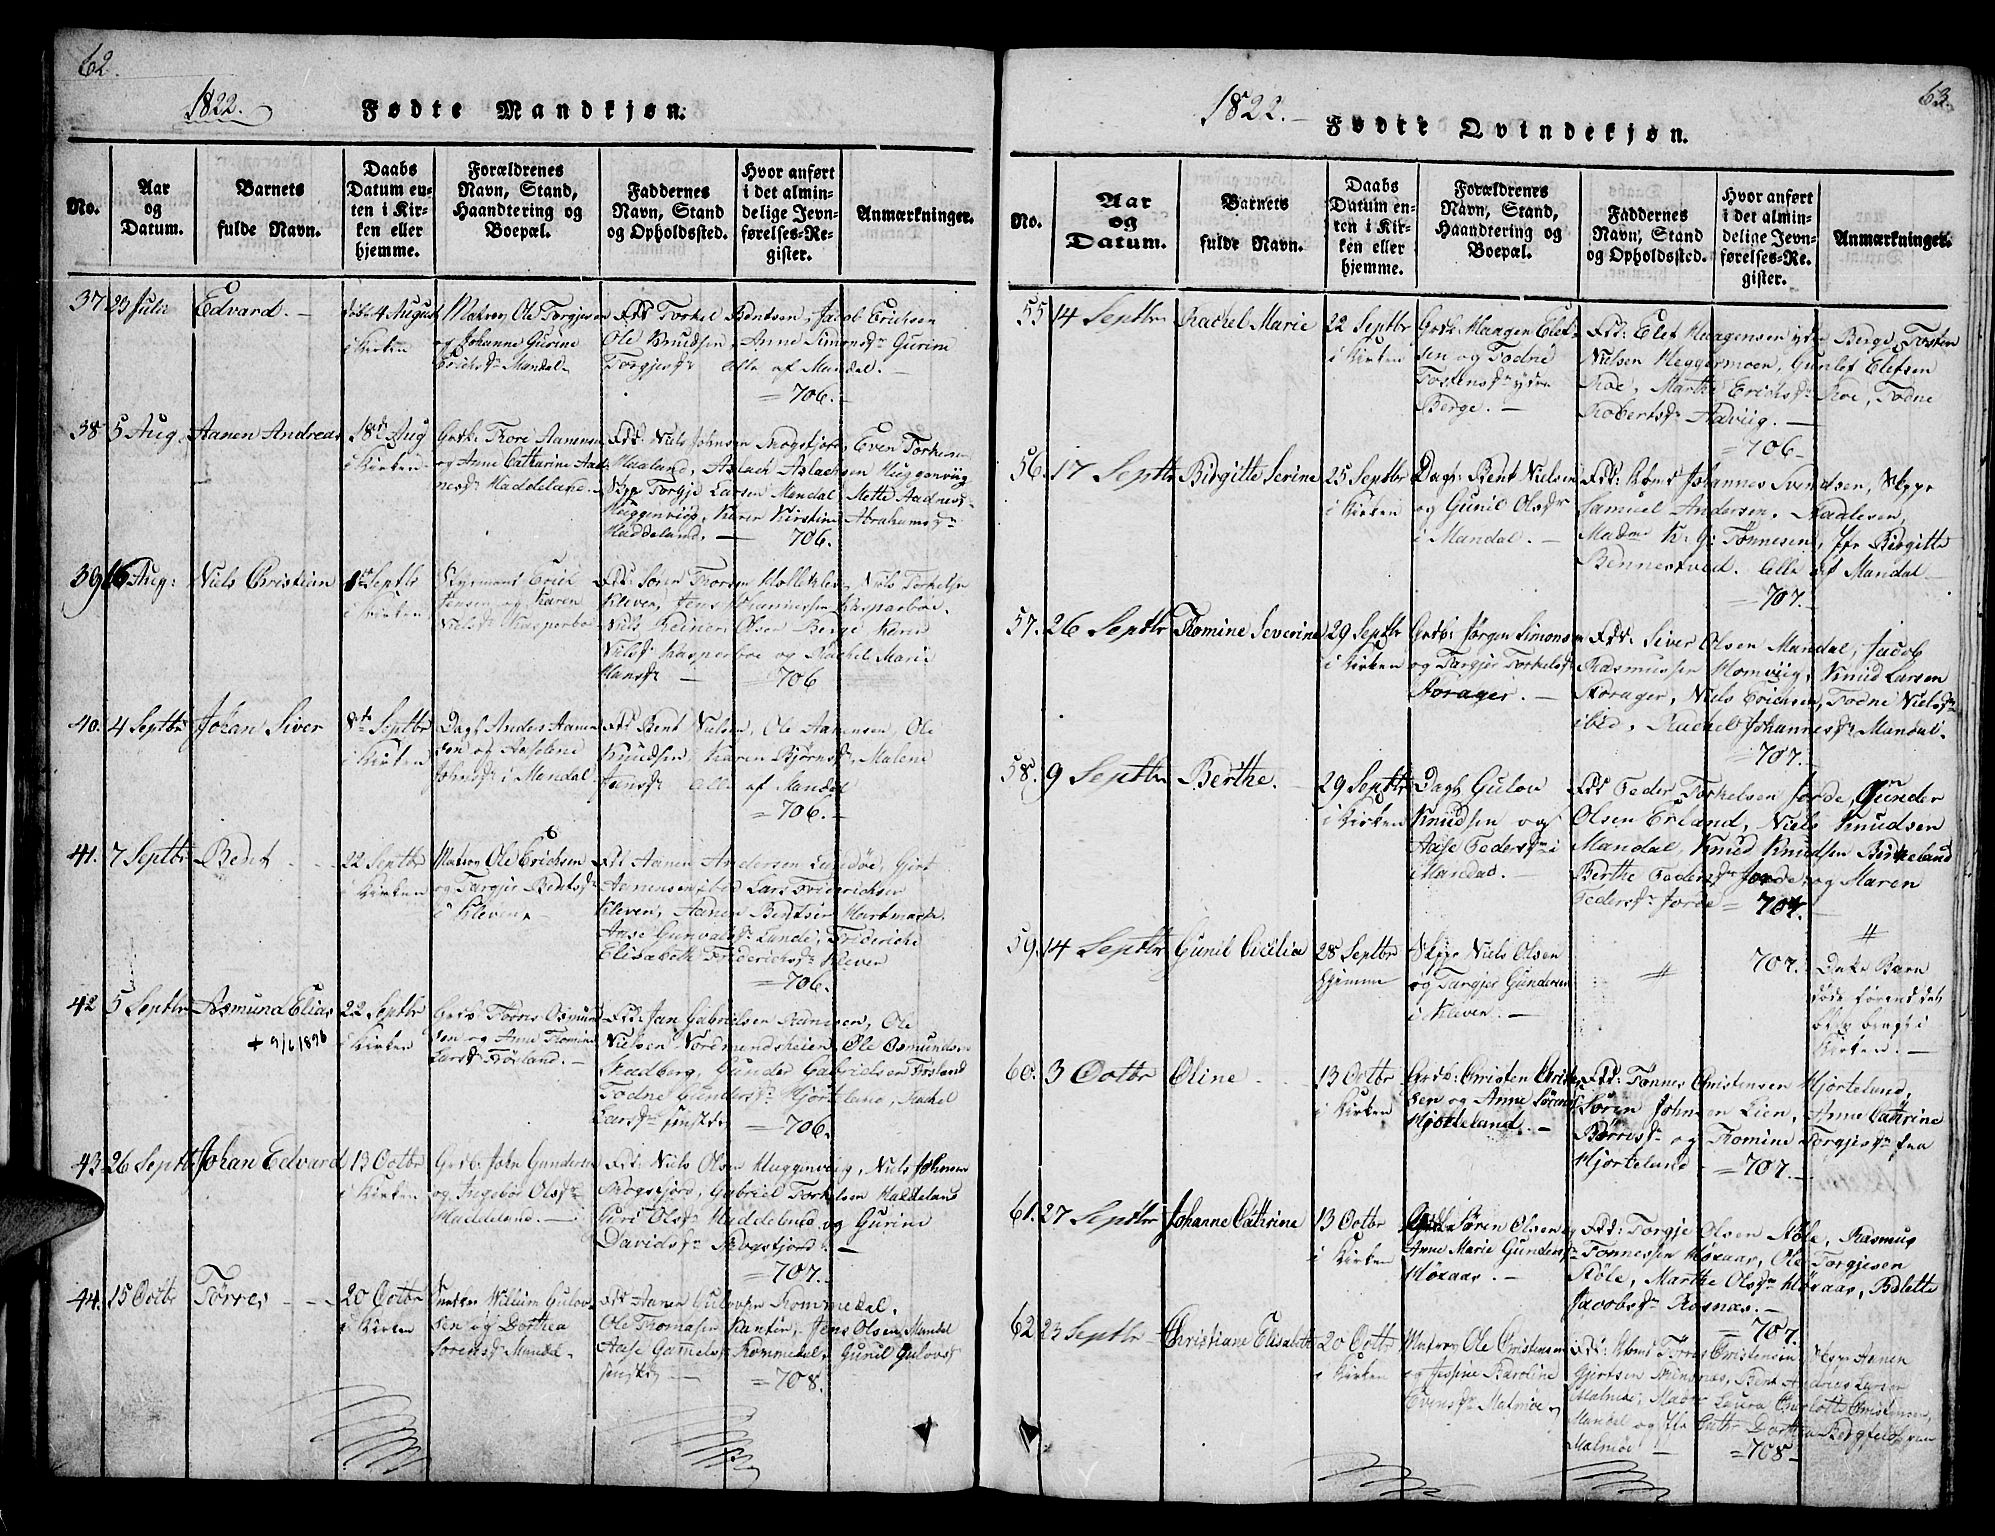 62.
1822.
Fødte Mandkjøn.
No.
Aar
og
Datum.
Barnets
fulde Navn.
Daabs
Datum en-
ten i Kir-
ken eller
hjemme.
Forældrenes
Navn, Stand,
Haandtering og
Boepæl.
Faddernes
Navn, Stand
og Opholdssted.
Hvor anført
i det almin-
delige Jevn-
førelses-Re-
gister.
Anmærkninger.
37 23 Julii
Edvard.
August
i Kirken
Matroz Ole Torgjersen
og Johanne Gurine
Erichsdr Mandal
Fdr Torkel Bentsen, Jacob Erichsen
Ole Knudsen, Anne Simonsdr Gurine
Torgjesdr alle af Mandal.
= 706.
38 5 Aug.
Aanen Andreas
18 Aug
i Kirken
Grdb: Tore Aanensen
og Anne Cathrine Aad-
nesdr Haddeland.
Fdr: Niels Johnsen Skogsfjord, Even Torkelsen
Haaland, Aslach Aslachsen Heggenviig
Torgje Larsen Mandal Mette Aadnesd.
Heggenviig, Karen Kirstine Abrahamsdr
Haddeland.
706.
39 16 Aug:
Niels Christian
1 Septbr
i Kirken
Styrmand Erich
Jensen og Karen
Nielsdr Kasperboe
Fdr: Søren Thorsen Holleklev, Niels Torkelsen
Kleven, Jens Johannessen Kasperboe.
Niels Reiner Olsen Berge Karen
Nielsdr Kasperboe og Rachel Marie
Hansdr
706
40. 4 Septbr
Johan Siver
8de Septbr
i Kirken
Dagl Anders Aanen-
sen og Aaselene
Johnsdr i Mandal
Fdr Bent Nielsen, Ole Aanensen, Ole
Knudsen, Karen Bjørnsdr, Malene
Jansdr alle af Mandal
= 706.
41. 7 Septbr
Bedet
22 Septbr
i Kirken
Matroz Ole Erichsen
og Targjer Bentsdr
i Kleven
Fdr Aanen Andersen, Gjert
Aanensen ibid, Lars Friderichsen
Kleven, Aanen Bentsen Hartmark.
Aase Gunvalsdr Lunde, Frideriche
Elisabeth Friderichsdr Kleven
= 706.
42 5 Septbr
Asmund Elias
+ 9/6 1896
22 Septbr
i Kirken
Grdb. Torres Osmund-
sen og Anne Tomine
Larsdr Frøsland.
Fdr: Jan Gabrielsen Ranesen, Ole
Nielsen Nordmandsheien, Ole Osmundsen
Stadberg, Gunder Gabrielsen Frøsland
Todne Gundersdr Hjorteland, Rachel
Larsdr
= 706.
43. 26 Septbr
Johan Edvard
13 Octbr
i Kirken
Grdb. John Gundersen
og Ingebor Olsdr
Haddeland.
Fdr: Niels Olsen Heggenviig, Niels Johnsen
Skogsfjord, Gabriel Torkelsen Haddeland
Siri Olsdr Haddeland og Gurine
Davidsdr Skogsfjord.
= 707.
44. 15 Octbr
Tørres
20 Octbr
i Kirken
Wilium Gulov-
sen og Dorthea
Sorensdr Mandal
Fdr Aanen Gulovsen Rommedal.
Ole Thomasen Kantin, Jens Olsen, Mandal
Aase Gamelsdr Rommedal, Gunil Gulovsdr
= 708.
63.
1822.
Fødte Qvindekjøn.
No.
Aar
og
Datum.
Barnets
fulde Navn.
Daabs
Datum en-
ten i Kir-
ken eller
hjemme.
Forældrenes
Navn, Stand,
Haandtering og
Boepæl.
Faddernes
Navn, Stand
og Opholdssted.
Hvor anført
i det almin-
delige Jevn-
førelses-Re-
gister.
Anmærkninger.
55 14 Septbr
Rachel Marie
22 Septbr
i Kirken
Grdb. Haagen Elef-
sen og Todne
Tostensdr ydre
Berge.
Fdr: Elef Haagensen ydre Berge, Tosten
Nielsen Heggermoen, Gunlef Elefsen
Roe, Marthe Erichsdr Roe, Todne
Robertsdr Aaviig.
= 706.
56. 17 Septbr
Birgitte Serine
25 Septbr
i Kirken
Dagl: Bent Nielsen
og Gunil Olsdr
i Mandal.
Fdr: Johannes Svendsen, Skpr
Samuel Andersen. Madlesen,
Madm K: G: Tønnesen, Jfr Birgitte
Bennestved. Alle af Mandal
= 707.
57. 26 Septbr
Tomine Severine
29 Septbr
i Kirken
Grdb: Jørgen Simonsen
og Targjer Torkelsdr
Storager.
Fdr: Siver Olsen Mandal, Jacob
Rasmussen Homviig, Knud Larsen
Storager, Niels Erichsen, Todne Nielsdr
ibid, Rachel Johannesdr Mandal.
= 707.
58. 9 Septbr
Berthe.
29 Septbr
i Kirken
Dagl Gulov
Knudsen og
Aase Federsdr i
Mandal.
Fdr Feder Torkelsen Jorde, Gunder
Olsen Erland, Niels Knudsen
Mandal, Knud Knudsen Birkeland
Berthe Federsdr Jorde, og Maren
Federsdr Jorde
= 707.
59. 14 Septbr
Gunil Cicilia
28 Septbr
Hjemme
Skpr Niels Olsen
og Targjer Gundersdr
i Kleven.
〃
707.
〃
Dette Barn
døde førend det
blev bragt i
Kirken.
60. 3 Octbr
Oline
13 Octbr
i Kirken
Grdb: Christen Christen-
sen og Anne Sørensdr
Hjorteland.
Fdr: Tønnes Christensen Hjorteland,
Søren Johnsen Lien, Anne Cathrine
Børresdr og Tomine Torgjesdr fra
Hjorteland
= 707.
61. 27 Septbr
Johanne Cathrine
13 Octbr
i Kirken
Søren Olsen og
Anne Marie Gundersdr
Høxaas.
Fdr: Torgje Olsen Støle, Rasmus
Tønnessen Høxaas, Ole Torgjesen
Støle, Marthe Olsdr Høxaas, Bolette
Jacobsdr Rosnæs.
= 707.
62 23 Septbr
Christiane Elisabeth
20 Octbr
i Kirken
Matroz Ole Christensen
og Jessine Karoline
Evensdr Malmøe
Fdr: Torres Christensen Skpr Aanen
Gjertsen, Bent Andreas Larsen
Malmøe, Laura Charlotte Christensen,
Mandal og Cath: Dorthea Bergfeldt
Malmøe
= 708